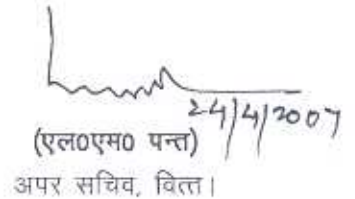 24/4/2007
(एल०एम० पन्त)
अपर सचिव, वित्त।